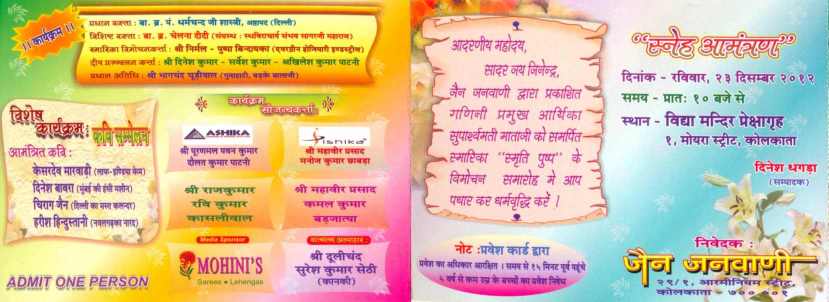 ।। कार्यक्रम ।।
प्रधान वक्ता : बा. ब्र. पं. धर्मचन्द जी शास्त्री, अष्टापद (दिल्ली)
विशिष्ट वक्ता : बा. ब्र. चेलना दीदी (संघस्थ : स्थविराचार्य संभव सागरजी महाराज)
स्मारिका विमोचनकर्त्ता : श्री निर्मल - पुष्पा बिन्दायका (एवरग्रीन होजियारी इण्डस्ट्रीज)
दीप प्रज्ज्वलन कर्त्ता : श्री दिनेश कुमार - सर्वेश कुमार - अखिलेश कुमार पाटनी
प्रधान अतिथि : श्री भागचंद चूड़ीवाल (गुवाहाटी, बड़के बालजी)
विशेष
कार्यक्रम : कवि सम्मेलन
आमंत्रित कवि :
केसरदेव मारवाड़ी (लाफ-इण्डिया फेम)
दिनेश बावरा (मुंबई की हंसी मशीन)
चिराग जैन (दिल्ली का मस्त कलन्दर)
हरीश हिन्दुस्तानी (नवलगढ़का नारद)
ADMIT ONE PERSON
कार्यक्रम
सौजन्यकर्त्ता
ASHIKA
श्री पूरणमल पवन कुमार
दौलत कुमार पाटनी
ishika
श्री महावीर प्रसाद
मनोज कुमार छाबड़ा
श्री राजकुमार
रवि कुमार
कासलीवाल
श्री महावीर प्रसाद
कमल कुमार
बड़जात्या
Media Sponsor
MOHINI'S
Sarees • Lehengas
वात्सल्य अल्पाहार :
श्री दूलीचंद
सुरेश कुमार सेठी
(कानकी)
आदरणीय महोदय,
सादर जय जिनेन्द्र,
जैन जनवाणी द्वारा प्रकाशित
गणिनी प्रमुख आर्यिका
सुपार्श्वमती माताजी को समर्पित
स्मारिका "स्मृति पुष्प" के
विमोचन समारोह मे आप
पधार कर धर्मवृद्धि करें !
नोट :प्रवेश कार्ड द्वारा
प्रवेश का अधिकार आरक्षित । समय से १५ मिनट पूर्व पहुंचे
५ वर्ष से कम उम्र के बच्चों का प्रवेश निषेध
"स्नेह आमंत्रण"
दिनांक - रविवार, २३ दिसम्बर २०१२
समय - प्रातः १० बजे से
स्थान - विद्या मन्दिर प्रेक्षागृह
१, मोयरा स्ट्रीट, कोलकाता
दिनेश धगड़ा
(सम्पादक)
निवेदक :
जैन जनवाणी
२९/१, आरमीनियम स्ट्रीट,
कोलकाता - ७०० ००१